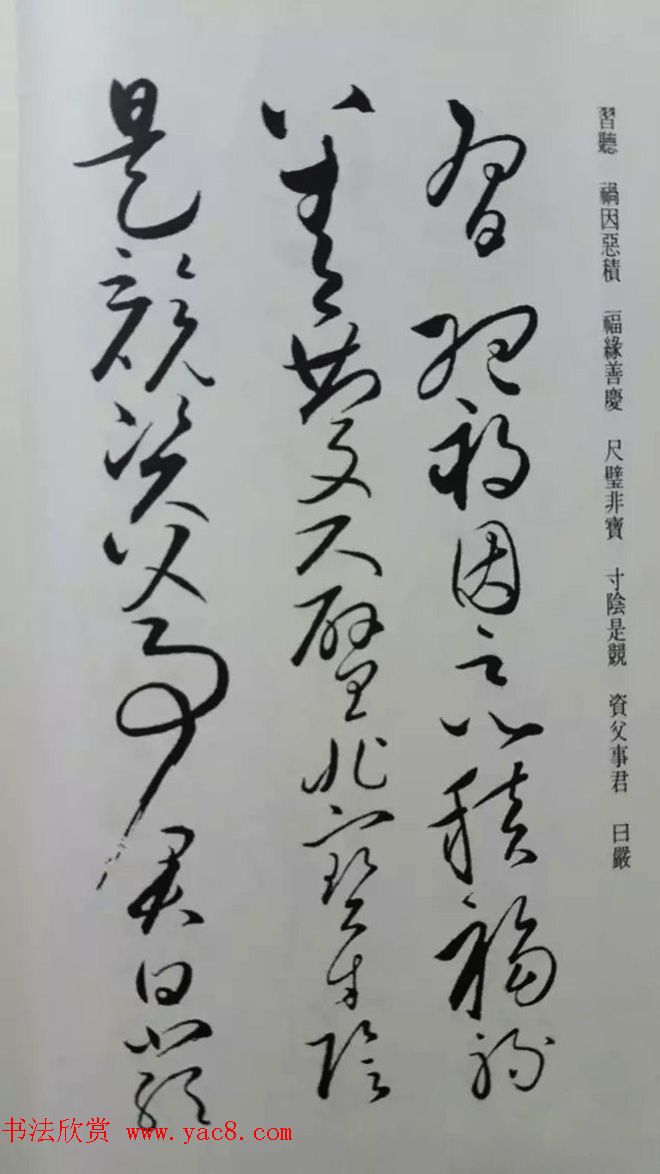 習聽　禍因惡積　福緣善慶　尺璧非寶　寸陰是競　資父事君　曰嚴
習聽禍因惡積福緣
善慶尺璧非寶寸陰
是競資父事君曰嚴
书法欣赏 www.yac8.com